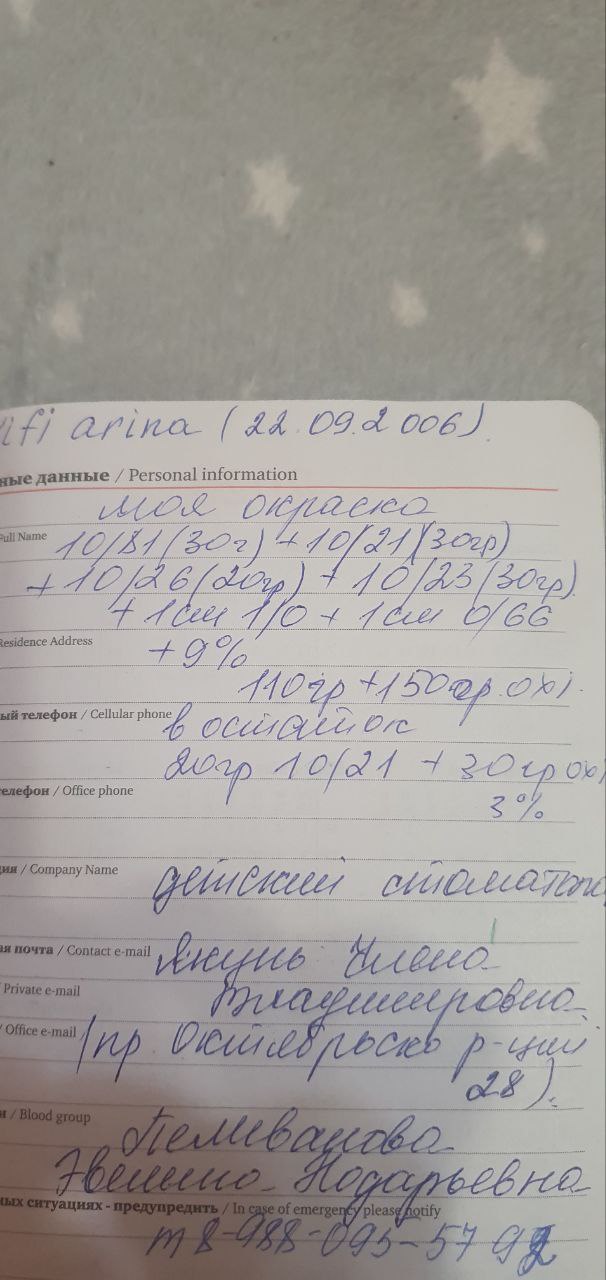 ifi arina (22.09.2006).
ные данные / Personal information
моя окраска
Full Name 10/81(30г) + 10/21(30гр)
+ 10/26(20гр) + 10/23(30гр)
+ 1см 1/0 + 1см 0/66
Residence Address
+ 9%
110гр + 150гр. oxi.
ый телефон / Cellular phone
в остаток
20гр 10/21 + 30гр oxi
елефон / Office phone
3%
ия / Company Name
детский стоматоло
ая почта / Contact e-mail Якунь Элено
/ Private e-mail
Владимировно.
/ Office e-mail (пр. Октябрьско р-ции
28).
и / Blood group
Пеливаново
Эвелино Нодарьевна
ных ситуациях - предупредить / In case of emergency please notify
т 8-988-095-57 92